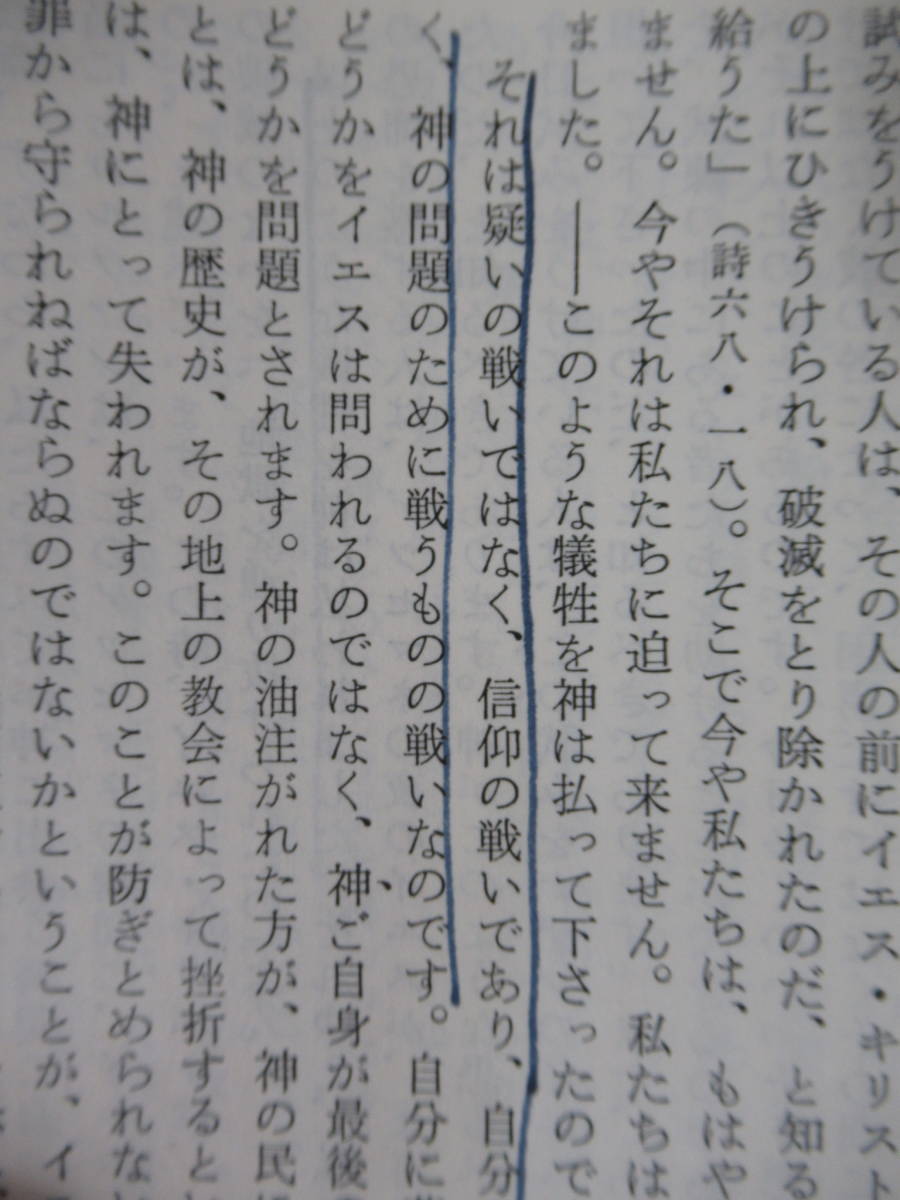 試みをうけている人は、その人の前にイエス・キリスト
の上にひきうけられ、破滅をとり除かれたのだ、と知る
給うた」（詩六八・一八）。そこで今や私たちは、もはや
ません。今やそれは私たちに迫って来ません。私たちは
ました。――このような犠牲を神は払って下さったので
それは疑いの戦いではなく、信仰の戦いであり、自分
く、神の問題のために戦うものの戦いなのです。自分に
どうかをイエスは問われるのではなく、神ご自身が最後
どうかを問題とされます。神の油注がれた方が、神の民
とは、神の歴史が、その地上の教会によって挫折すると
は、神にとって失われます。このことが防ぎとめられな
罪から守られねばならぬのではないかということが、イ